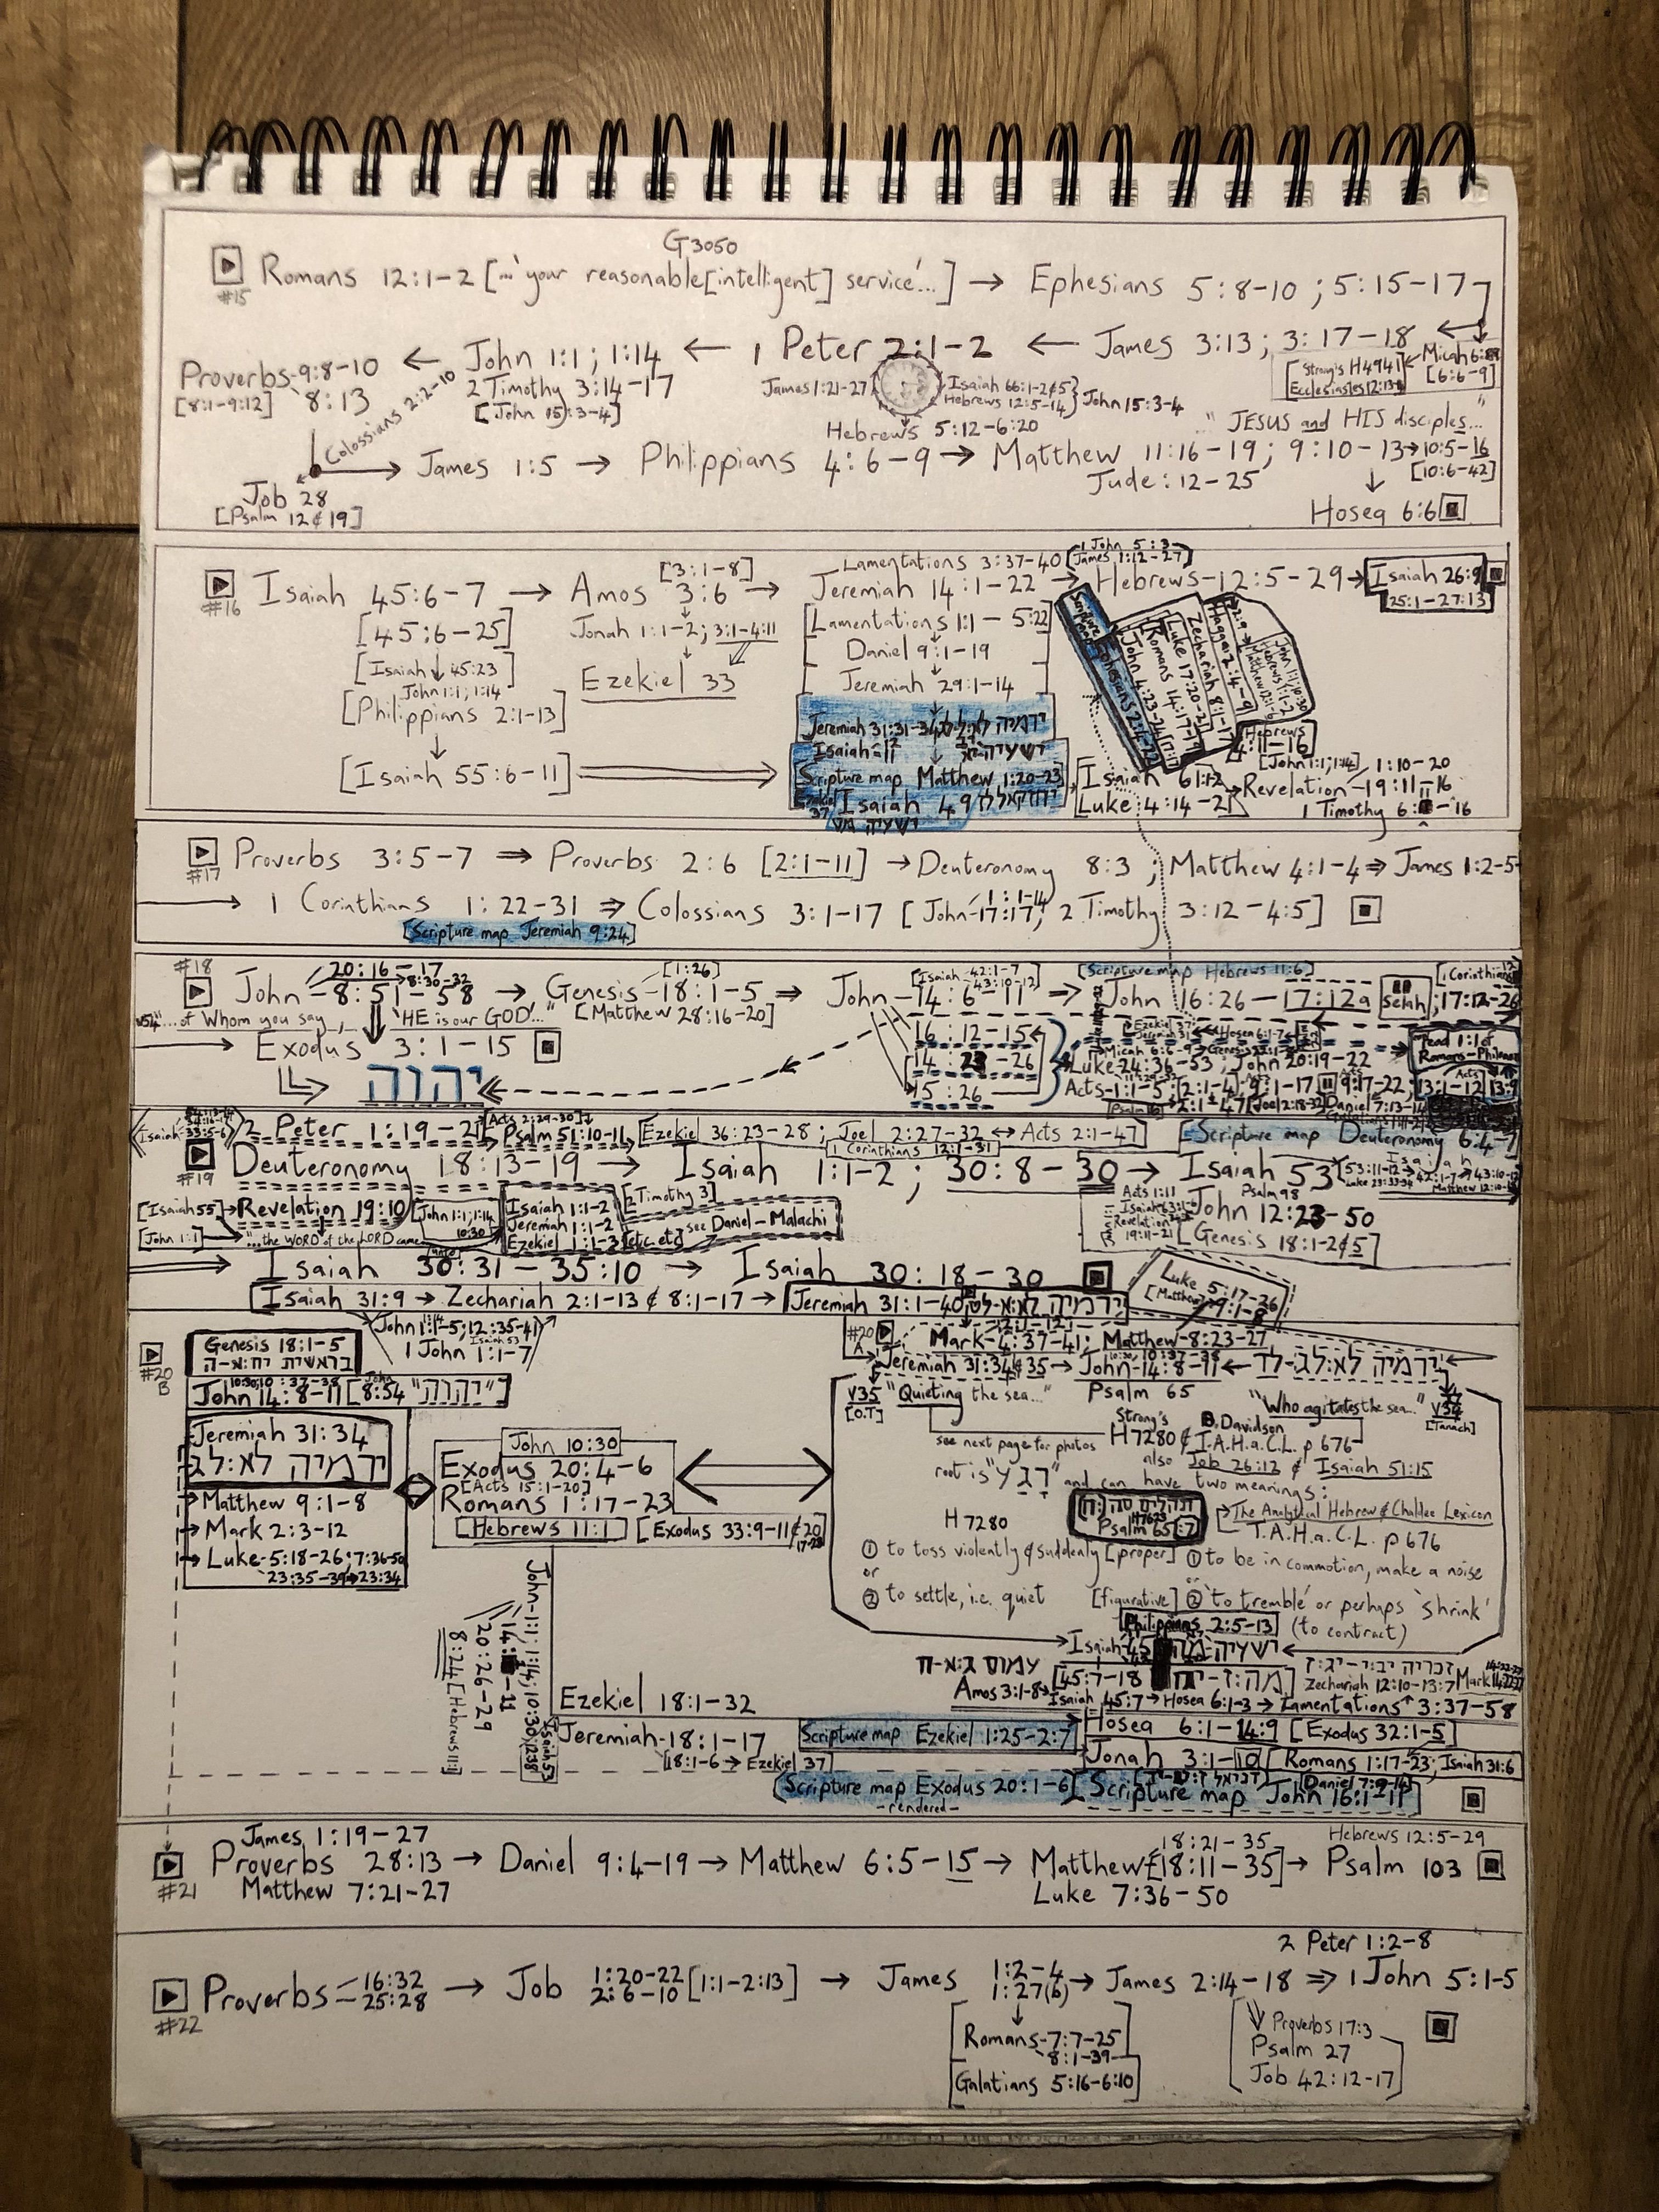 G3050
Romans 12:1-2 [...'your reasonable[intelligent] service'...] → Ephesians 5:8-10 ; 5:15-17
#15
Proverbs-9:8-10 ← John 1:1 ; 1:14 ← 1 Peter 2:1-2 ← James 3:13 ; 3:17-18
[8:1-9:12] 8:13
2 Timothy 3:14-17
[John 15:3-4]
James 1:21-27
Isaiah 66:1-2¢5}
Hebrews 12:5-14} John 15:3-4
Hebrews 5:12-6:20
[Strong's H4941]
Micah 6:8
[6:6-9]
Colossians 2:2-10
"JESUS and HIS disciples..."
→ James 1:5 → Philippians 4:6-9 → Matthew 11:16-19 ; 9:10-13→10:5-16
[10:6-42]
Jude:12-25
Job 28
[Psalm 12¢19]
Hosea 6:6
#16
Lamentations 3:37-40
1 John 5:3
James 1:12-27
[3:1-8]
Isaiah 45:6-7 → Amos 3:6 → Jeremiah 14:1-22 → Hebrews-12:5-29→ Isaiah 26:9
25:1-27:13
[45:6-25]
Jonah 1:1-2; 3:1-4:11
[Lamentations 1:1-5:22]
[Isaiah 45:23]
Ezekiel 33
Daniel 9:1-19
John 1:1; 1:14
[Philippians 2:1-13]
Jeremiah 29:1-14
Scripture map Ephesians 2:4-22
John 4:23-24
Romans 14:17-19
Luke 17:20-21
Zechariah 8:1-17
Haggai 2:4-9
Jeremiah 31:31-34
Isaiah-11
Hebrews 4:11-16
[John 1:1;1:14]
[Isaiah 55:6-11]
Scripture map Matthew 1:20-23
Ezekiel 37
Isaiah 49
Isaiah 61:1-2
Luke 4:14-21
1:10-20
Revelation-19:11-16
1 Timothy 6:
-16
#17
Proverbs 3:5-7 ⇒ Proverbs 2:6 [2:1-11] → Deuteronomy 8:3 ; Matthew 4:1-4 ⇒ James 1:2-5
→ 1 Corinthians 1:22-31 ⇒ Colossians 3:1-17 [John-17:17; 1:1-14 2 Timothy 3:12-4:5]
[Scripture map Jeremiah 9:24]
#18
20:16-17
8:30-32
[1:26]
[Isaiah-42:1-7
43:10-12]
[Scripture map Hebrews 11:6]
John-8:51-58 → Genesis-18:1-5 ⇒ John-14:6-11 ⇒ John 16:26-17:12a Selah ;17:12-26
v54"...of Whom you say, 'HE is our GOD'..."
[Matthew 28:16-20]
→ Exodus 3:1-15
16:12-15
14:23-26
15:26
Micah 6:6-9
Luke-24:36-53 ; John 20:19-22
יהוה
Acts-1:1-5
9:1-17
9:17-22
13:1-12
2:1-47 [Joel 2:18-32]
Daniel 7:13-14
2 Peter 1:19-21
Acts 2:29-30
Psalm 51:10-11
[Ezekiel 36:23-28 ; Joel 2:27-32 ↔ Acts 2:1-47]
[Scripture map Deuteronomy 6:4-7
1 Corinthians 12:1-31
#19
Deuteronomy 18:13-19 → Isaiah 1:1-2 ; 30:8-30 → Isaiah 53
[Isaiah 55]→Revelation 19:10
[John 1:1;1:14
10:30]
Isaiah 1:1-2
Jeremiah 1:1-2
Ezekiel 1:1-3 [etc.etc]
2 Timothy 3]
see Daniel-Malachi
Acts 1:11
Psalm 98
John 12:23-50
Revelation 19:11-21
[Genesis 18:1-2¢5]
[John 1:1]
"...the WORD of the LORD came
⇒ Isaiah 30:31-35:10 → Isaiah 30:18-30
[Isaiah 31:9 → Zechariah 2:1-13 ¢ 8:1-17 → Jeremiah 31:1-40
Luke 5:17-26
[Matthew 9:1-8
John 1:1-5;12:35-41
Isaiah 53
1 John 1:1-7
#20 B
Genesis 18:1-5
בראשית יח:א-ה
10:30;10:37-38
John 14:8-11 [John 8:54 "יהוה"]
Jeremiah 31:34
ירמיה לא:לג
Matthew 9:1-8
Mark 2:3-12
Luke-5:18-26;7:36-50
23:35-39→23:34
John 10:30
Exodus 20:4-6
[Acts 15:1-20]
Romans 1:17-23
[Hebrews 11:1] [Exodus 33:9-11¢20]
17-23
#20 A
Mark-4:37-41; Matthew-8:23-27
Jeremiah 31:34¢35 → John-14:8-11 ← ירמיה לא:לג-לד
Psalm 65
v35 "Quieting the sea..."
[O.T]
"Who agitates the sea..." v34
[Tanach]
see next page for photos
Strong's H7280 ¢ B.Davidson T.A.H.a.C.L. p 676
also Job 26:12 ¢ Isaiah 51:15
root is "רָגַע" and can have two meanings:
H7280
תהלים סה:ח
H7623
Psalm 65:7
The Analytical Hebrew & Chaldee Lexicon
T.A.H.a.C.L. p 676
① to toss violently & suddenly [proper] ① to be in commotion, make a noise
or
② to settle, i.e. quiet [figurative] ② 'to tremble' or perhaps 'shrink'
(to contract)
Philippians 2:5-13
Isaiah-45
ישעיה-מה
עמוס ג:א-ח
[45:7-18
זכריה יב:י-יג:ז
Zechariah 12:10-13:7
Amos 3:1-8→ Isaiah 45:7 → Hosea 6:1-3 → Lamentations 3:37-58
John-1:1;1:14;10:30
20:26-29
8:24 [Hebrews 11:1]
Isaiah 53
Ezekiel 18:1-32
Jeremiah-18:1-17
18:1-6 → Ezekiel 37
Scripture map Ezekiel 1:25-2:7
Hosea 6:1-14:9 [Exodus 32:1-5]
Jonah 3:1-10 [Romans 1:17-23; Isaiah 31:6
Daniel 7:9-14
[Scripture map Exodus 20:1-6]
-rendered-
Scripture map John 16:1-11
#21
James 1:19-27
Proverbs 28:13 → Daniel 9:4-19 → Matthew 6:5-15 → Matthew [18:11-35] → Psalm 103
18:21-35
Hebrews 12:5-29
Matthew 7:21-27
Luke 7:36-50
2 Peter 1:2-8
#22
Proverbs 16:32 25:28 → Job 1:20-22 2:6-10 [1:1-2:13] → James 1:2-4 1:27(b) → James 2:14-18 ⇒ 1 John 5:1-5
Romans-7:7-25
8:1-39
Galatians 5:16-6:10
Proverbs 17:3
Psalm 27
Job 42:12-17